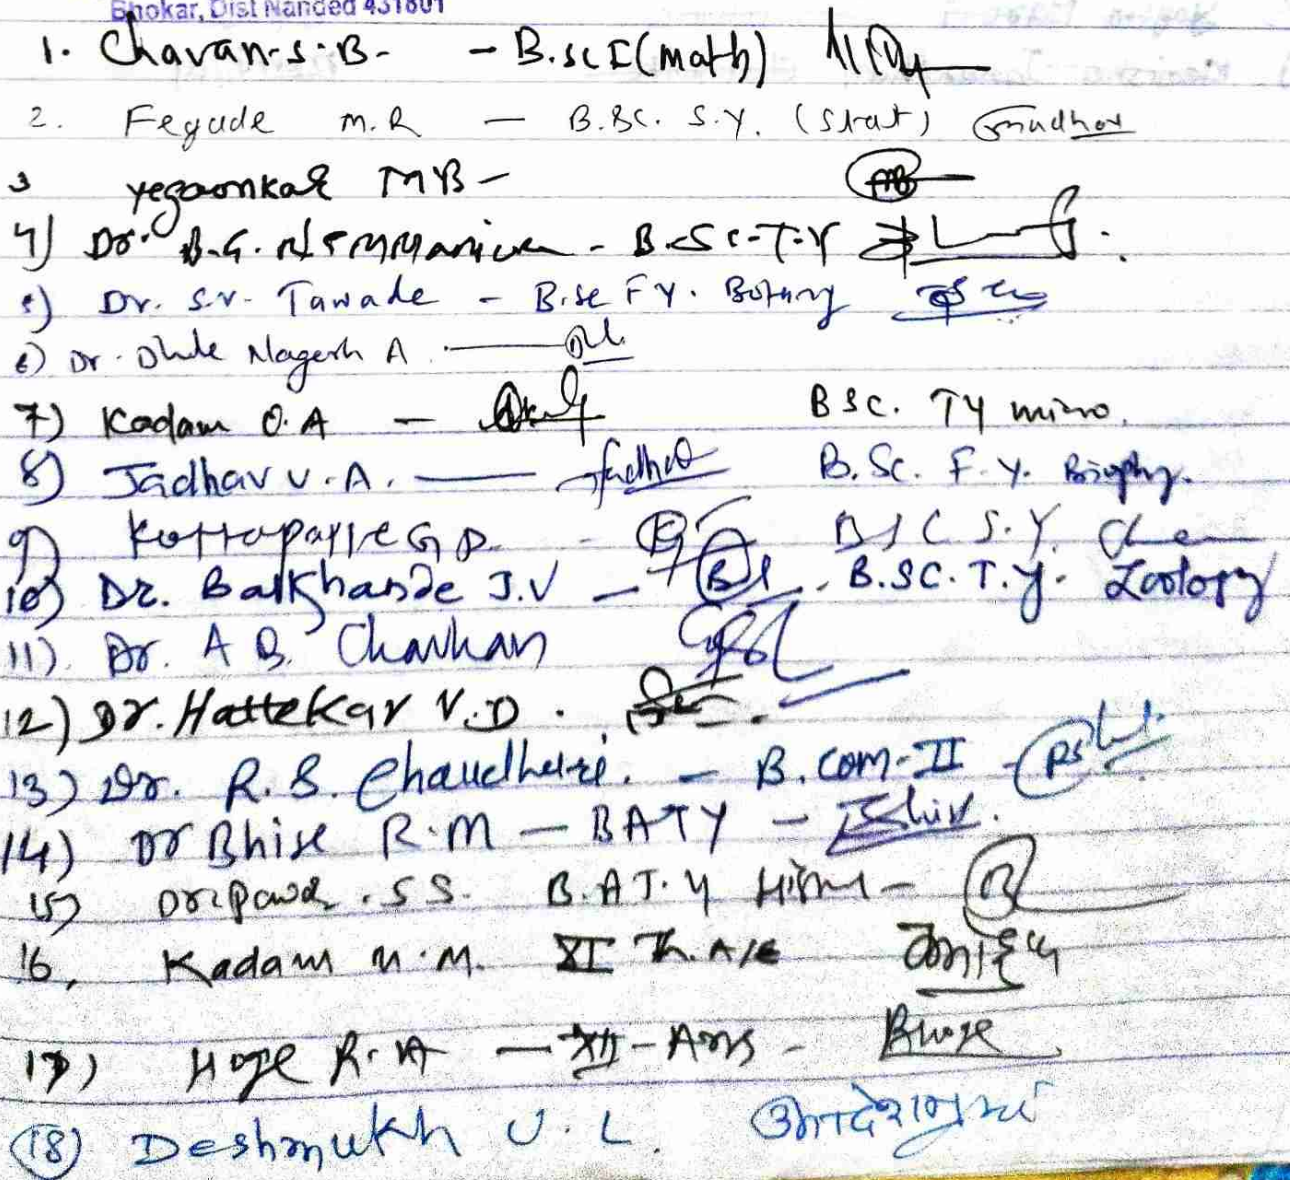 Bhokar, Dist Nanded 431801
1. Chavan.S.B- - B.sc I (math)
2. Fegade M.R - B.Sc. S.Y. (Stat)
3 yegaonkar MB-
4) Dr. B.G. - B.Sc-T.Y
5) Dr. S.V. Tawade - B.sc F Y. Botany
6) Dr. Dhule Nagesh A.
7) Kadam O.A - BSC. TY micro.
8) Jadhav V.A. B.Sc. F.Y. Biophy.
9) Kottapalle G D. - BSC S.Y. Chem
10) Dr. Balkhande J.V - B.SC. T.Y. Zoology
11). Dr. A B. Chavhan
12) Dr. Hattekar V.D.
13) Dr. R.S. Chaudhari. - B.Com-II -
14) Dr Bhise R.M - BA TY -
15) Dr. Pawar .S S. B.A T.Y -
16, Kadam M.M. XI Th. A/E
17) Hoge R.A - XII-Arts -
18) Deshmukh U.L.